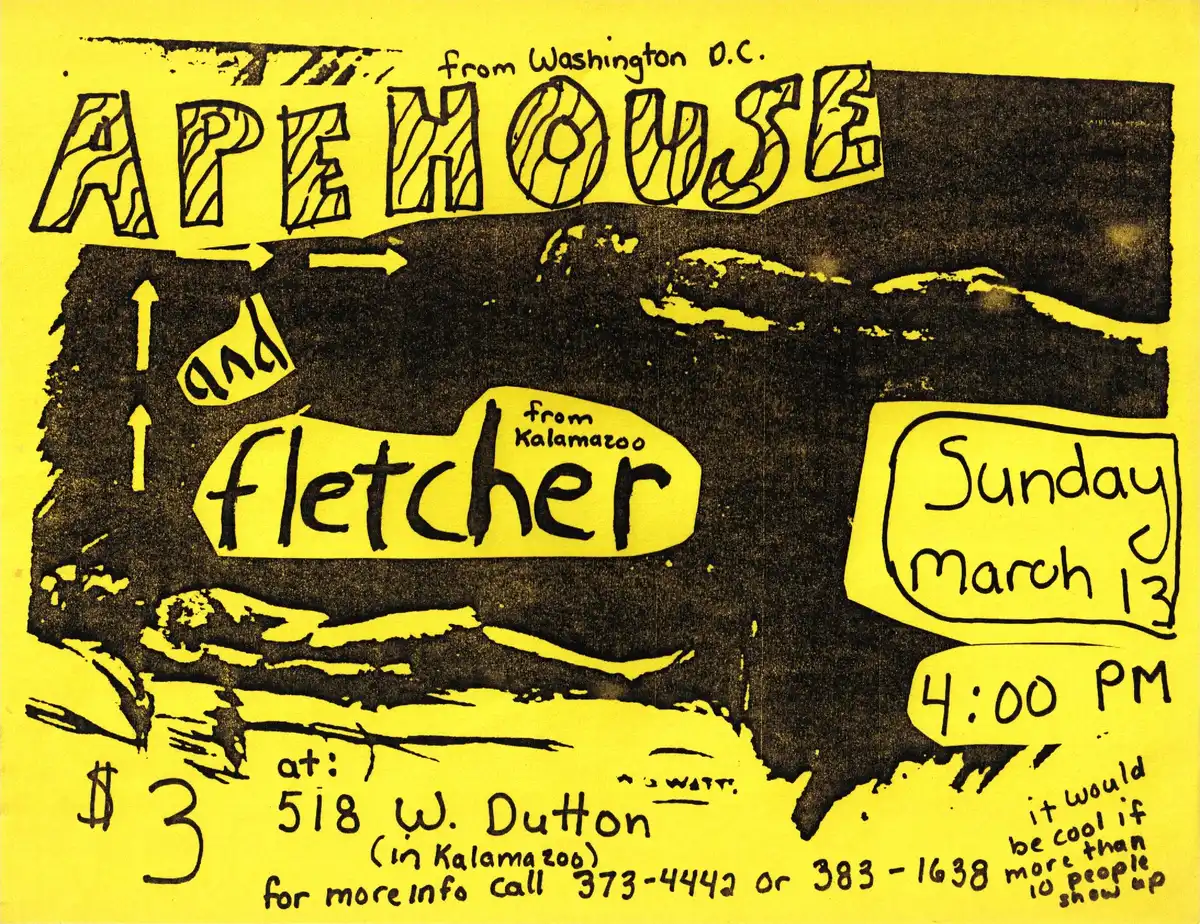 from Washington D.C.
APE HOUSE
and
from
Kalamazoo
fletcher
Sunday
March 13
4:00 PM
$3
at:
518 W. Dutton
(in Kalamazoo)
for more info call 373-4442 or 383-1638
it would
be cool if
more than
10 people
show up